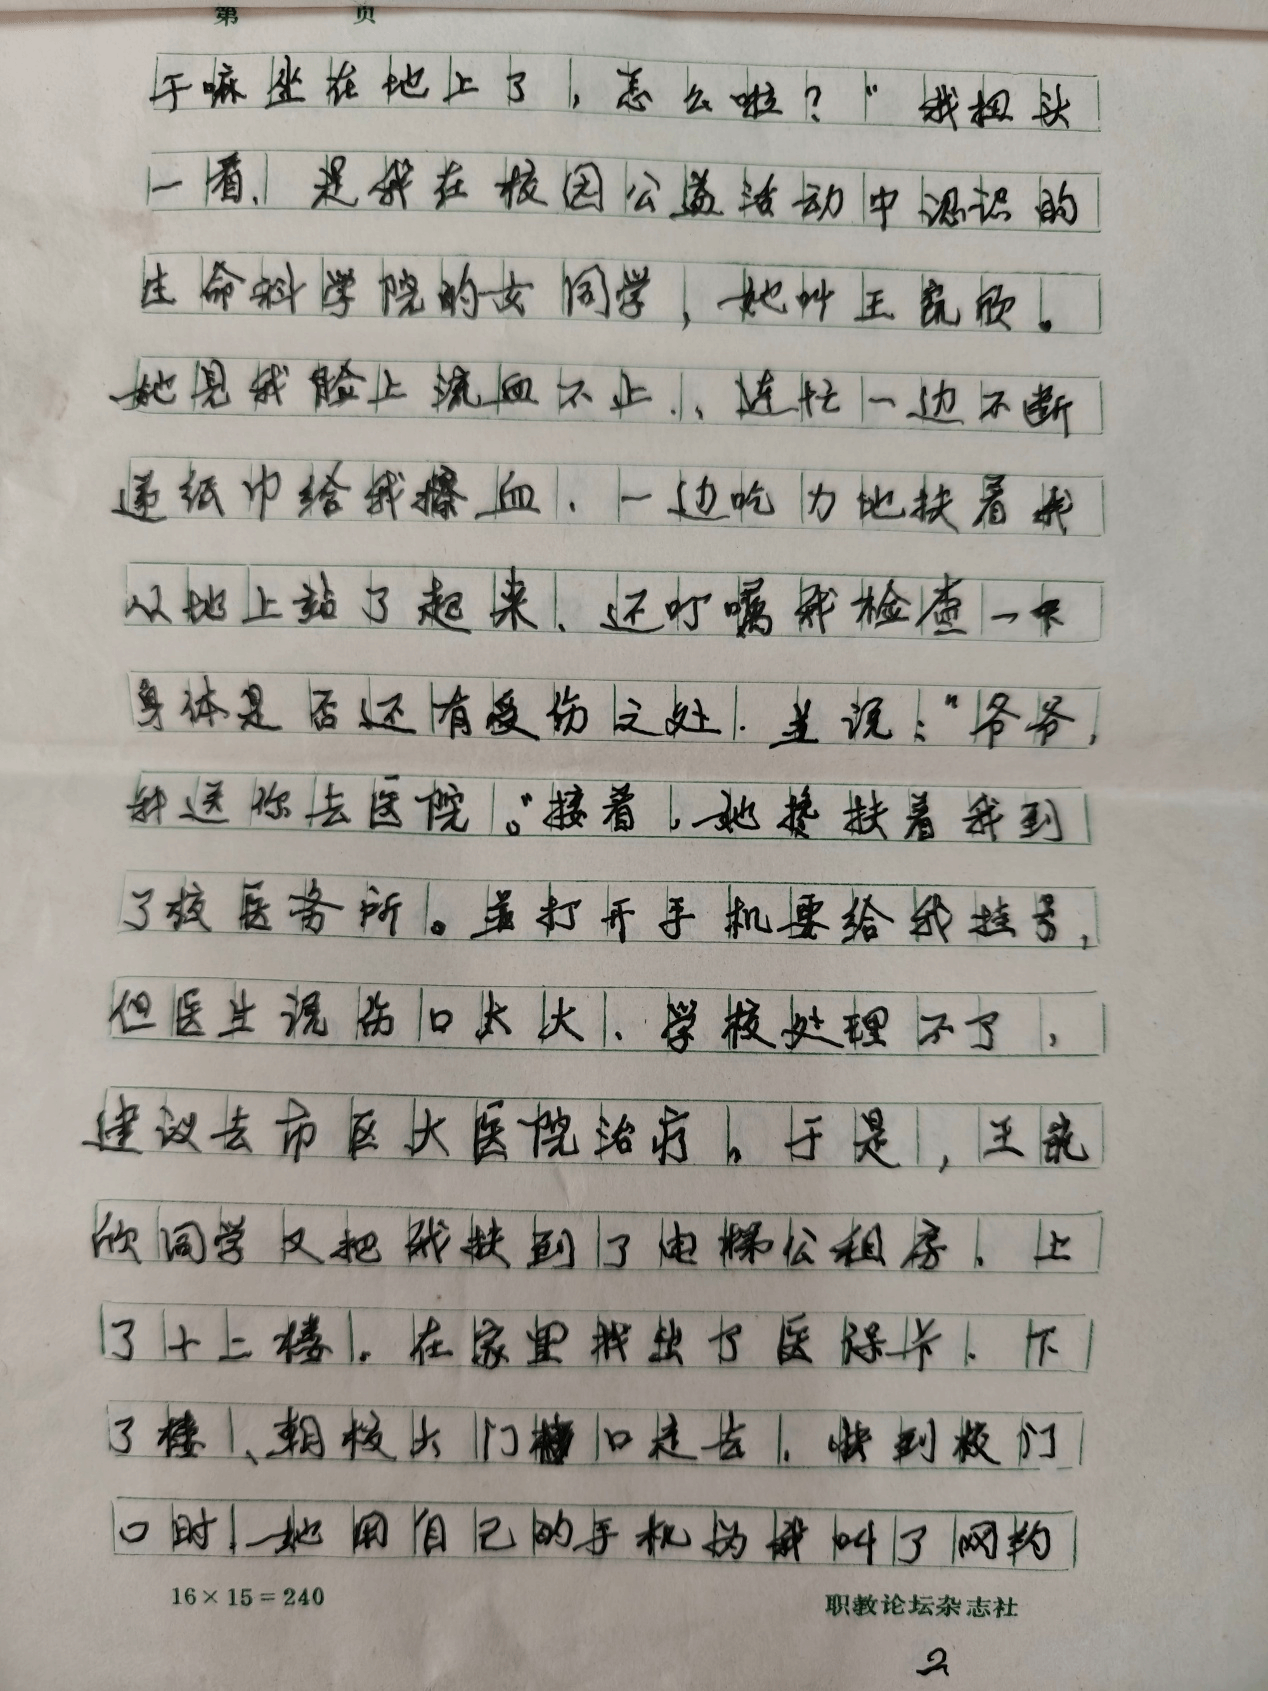 第 页
干嘛坐在地上了,怎么啦?"我扭头
一看,是我在校园公益活动中认识的
生命科学院的女同学,她叫王 欣。
她见我脸上流血不止,连忙一边不断
递纸巾给我擦血,一边吃力地扶着我
从地上站了起来,还叮嘱我检查一下
身体是否还有受伤之处,并说:"爷爷,
我送你去医院。"接着,她搀扶着我到
了校医务所。并打开手机要给我挂号,
但医生说伤口太大,学校处理不了,
建议去市区大医院治疗。于是,王
欣同学又把我扶到了电梯公租房,上
了十二楼,在家里找出了医保卡,下
了楼、朝校大门口走去,快到校门
口时,她用自己的手机为我叫了网约
16×15=240
职教论坛杂志社
2